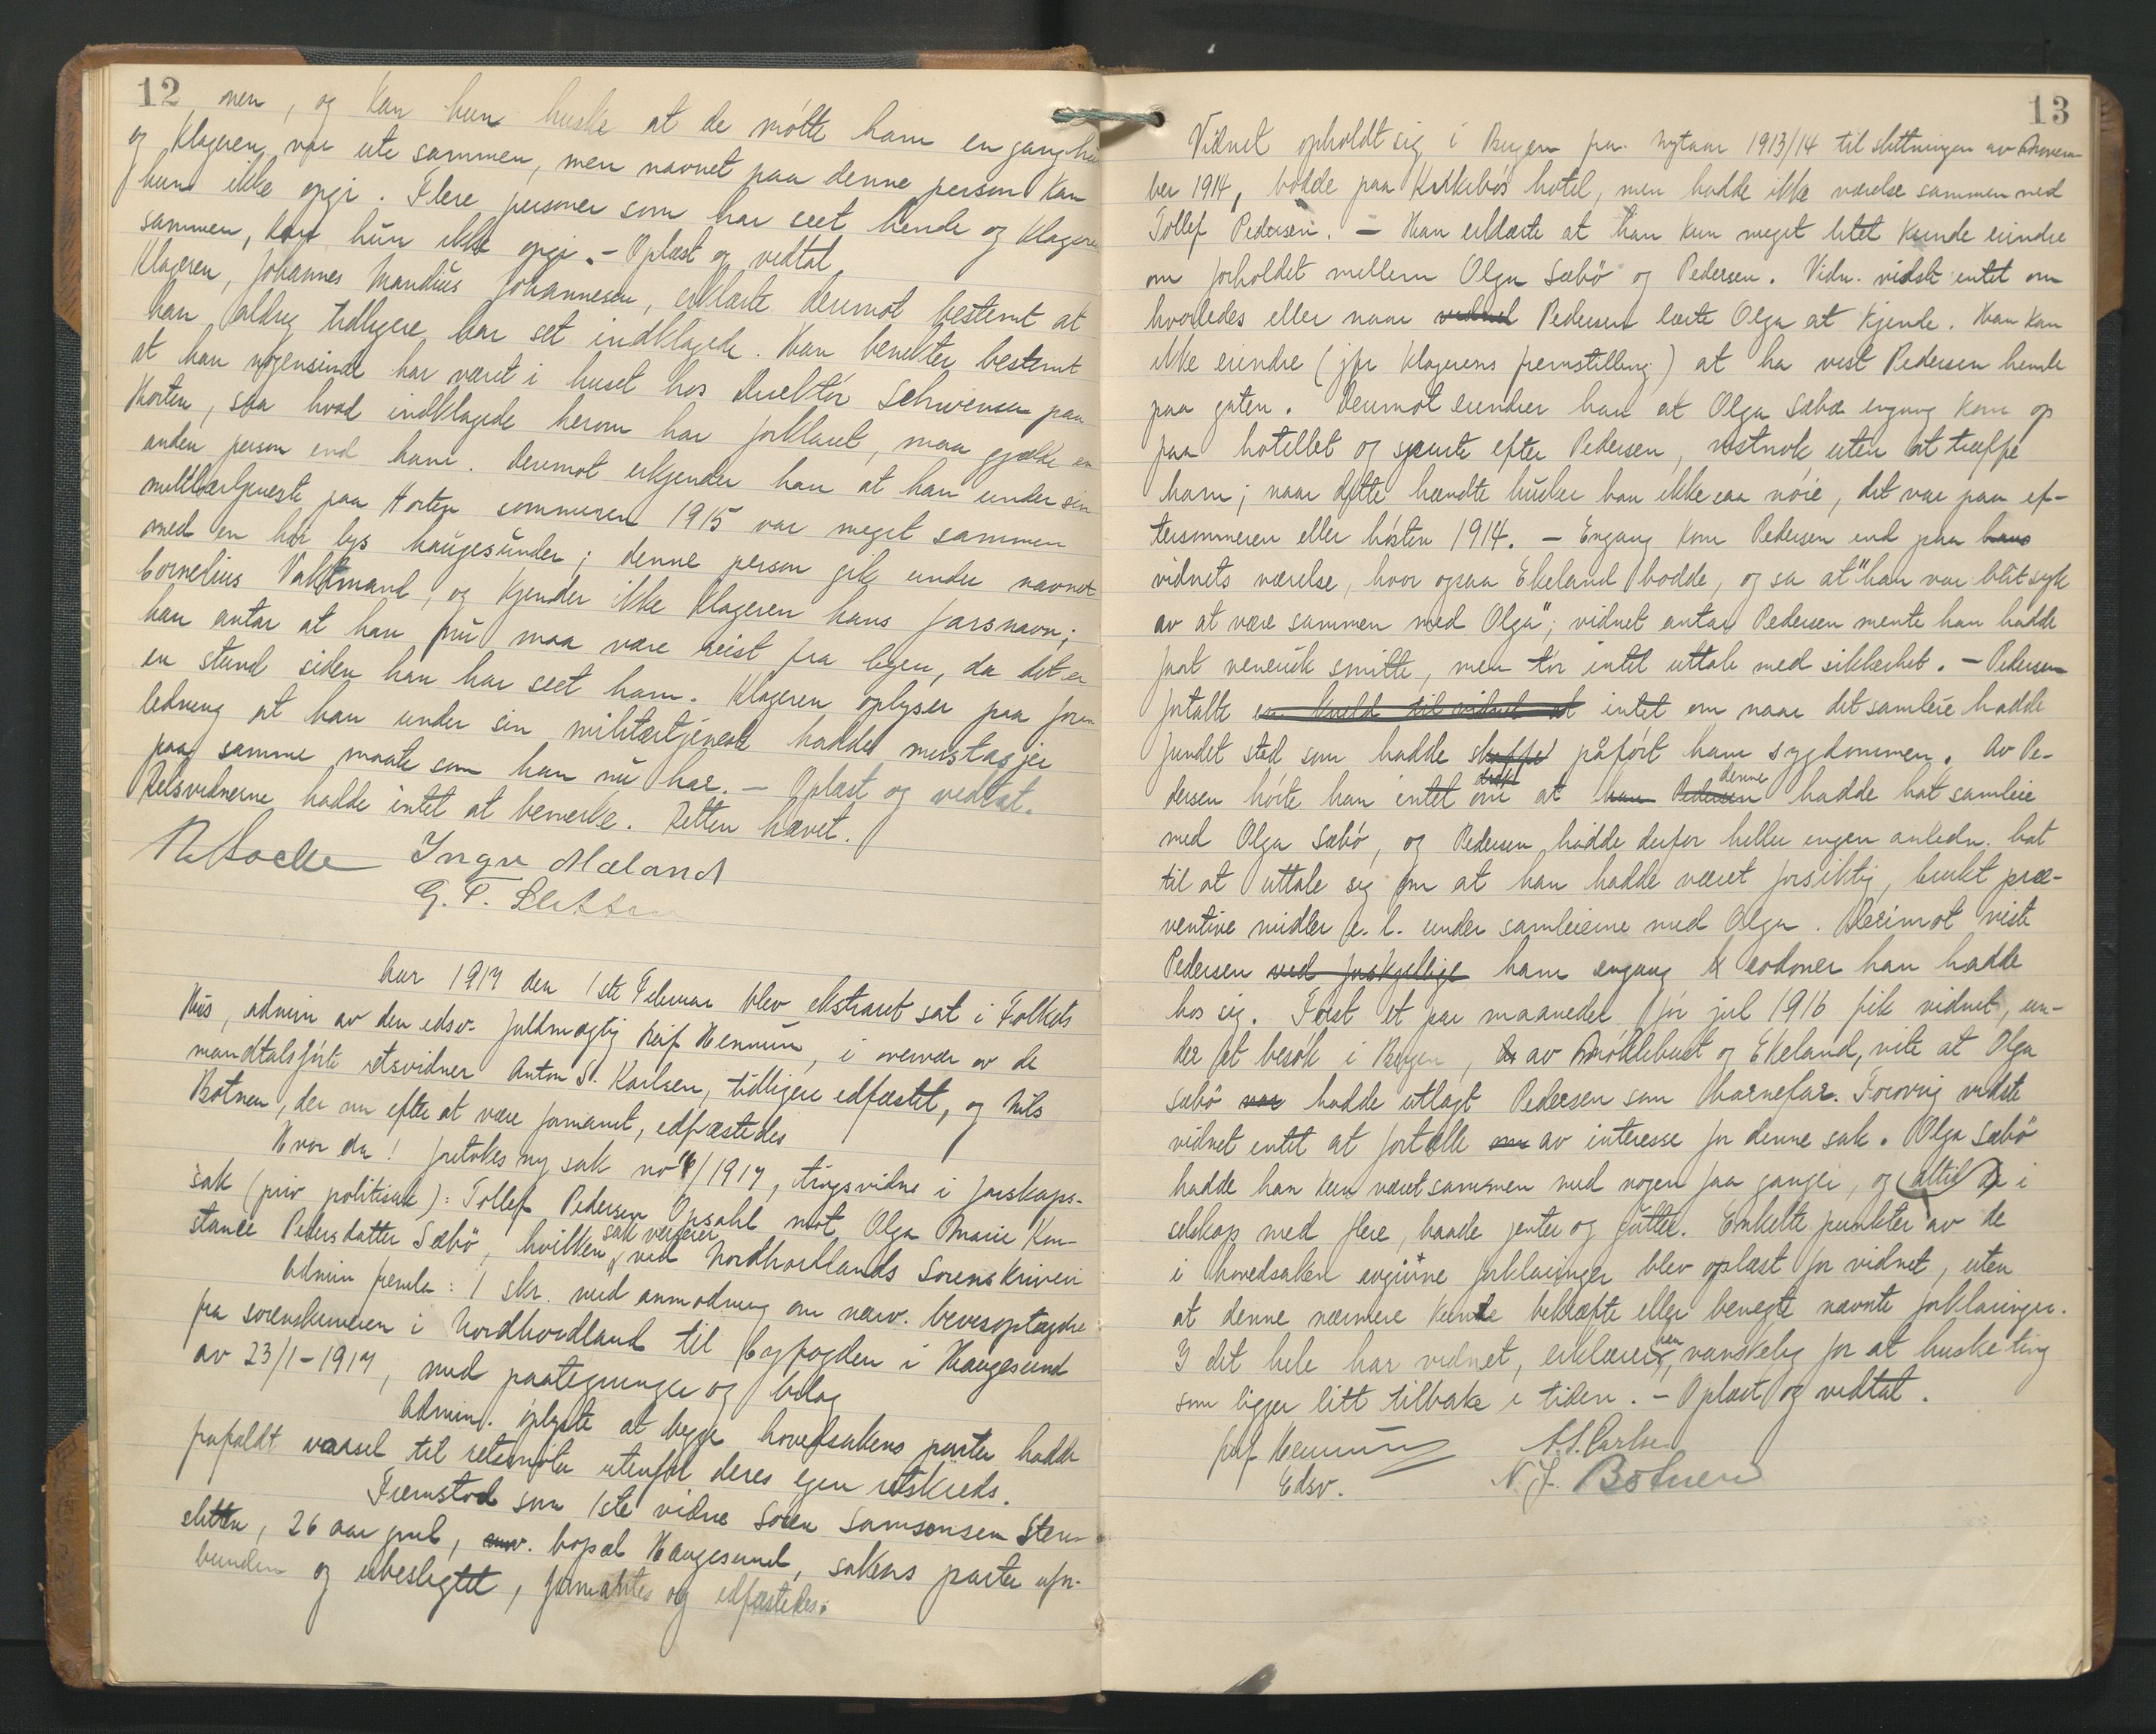 12
men, og kan hun huske at de møtte ham en gang hun
og klageren var ute sammen, men navnet paa denne person kan
hun ikke opgi. Flere personer som har seet hende og klageren
sammen, kan hun ikke opgi. - Oplæst og vedtat
Klageren, Johannes Mandius Johannesen, erklærte derimot bestemt at
han aldrig tidligere har set indklagede. Han benekter bestemt
at han nogensinde har været i huset hos direktør Schwensen paa
Horten, saa hvad indklagede herom har forklaret, maa gjælde en
anden person end ham. Derimot erkjender han at han under sin
militærtjeneste paa Horten sommeren 1915 var meget sammen
med en høi lys haugesunder; denne person gik under navnet
Cornelius Valdtmand, og kjender ikke klageren hans farsnavn;
han antar at han nu maa være reist fra byen, da det er
en stund siden han har seet ham. Klageren oplyser paa foran-
ledning at han under sin militærtjeneste hadde mustasjer
paa samme maate som han nu har. - Oplæst og vedtat.
Retsvidnerne hadde intet at bemerke. Retten hævet.
Ingv Mæland
G. T. Sletten
Aar 1917 den 1ste Februar blev ekstraret sat i Folkets
Hus, admin av den edsv. fuldmægtig Leif Hennum, i overvær av de
mandtalsførte retsvidner Anton S. Karlsen, tidligere edfæstet, og Nils
Botnen, der nu efter at være formanet, edfæstedes
Hvor da! foretokes ny sak no 4/1917, tingsvidne i farskaps-
sak (priv politisak): Tollef Pedersen Opsahl mot Olga Marie Kon-
stance Pedersdatter Sæbö, hvilken sak verserer ved Nordhordlands Sorenskriveri
Admin freml: 1 skr. med anmodning om nærv. bevisoptagelse
fra sorenskriveren i Nordhordland til byfogden i Haugesund
av 23/1-1917, med paategninger og bilag
Admin. oplyste at begge hovedsakens parter hadde
frafaldt varsel til retsmøter utenfor deres egen retskreds.
Fremstod som 1ste vidne Søren Samsonsen Sten-
sletten, 26 aar gml, anv. bopæl Haugesund, sakens parter ufor-
bunden og ubeslegtet, formantes og edfæstedes:
13
Vidnet opholdt sig i Bergen fra nytaar 1913/14 til slutningen av Novem-
ber 1914, bodde paa Kirkebøs hotel, men hadde ikke værelse sammen med
Tollef Pedersen. - Han erklærte at han kun meget litet kunde erindre
om forholdet mellem Olga Sæbö og Pedersen. Vidn. vidste intet om
hvorledes eller naar vidnet Pedersen lærte Olga at kjende. Han kan
ikke erindre (jfr klagerens fremstilling) at ha vist Pedersen hende
paa gaten. Derimot erindrer han at Olga Sæbø engang kom op
paa hotellet og spurte efter Pedersen, vistnok uten at træffe
ham; naar dette hændte husker han ikke saa nøie, det var paa ef-
tersommeren eller høsten 1914. - Engang kom Pedersen ind paa hans
vidnets værelse, hvor ogsaa Ekeland bodde, og sa at "han var blit syk
av at være sammen med Olga"; vidnet antar Pedersen mente han hadde
faat venerisk smitte, men tør intet uttale med sikkerhet. - Pedersen
fortalte en kveld til vidnet at intet om naar det samleie hadde
fundet sted som hadde skaffet påført ham sygdommen. Av Pe-
dersen hørte han intet om at han Pedersen denne hadde hat samleie
med Olga Sæbö, og Pedersen hadde derfor heller ingen anledn. hat
til at uttale sig om at han hadde været forsiktig, brukt præ-
ventive midler e. l. under samleierne med Olga. Derimot viste
Pedersen ved forskjellige ham engang kondomer han hadde
hos sig. Først et par maaneder før jul 1916 fik vidnet, un-
der et besøk i Bergen, av Brøklebust og Ekeland, vite at Olga
Sæbö var hadde utlagt Pedersen som barnefar. Forøvrig vidste
vidnet intet at fortælle av interesse for denne sak. Olga Sæbö
hadde han kun været sammen med nogen faa ganger, og altid i
selskap med flere, baade jenter og gutter. Enkelte punkter av de
i hovedsaken avgivne forklaringer blev oplæst for vidnet, uten
at denne nærmere kunde bekræfte eller benegte nævnte forklaringer.
I det hele har vidnet, erklærer han, vanskelig for at huske ting
som ligger litt tilbake i tiden. - Oplæst og vedtat.
Leif Hennum A. S. Karlsen
Edsv. N. J. Botnen